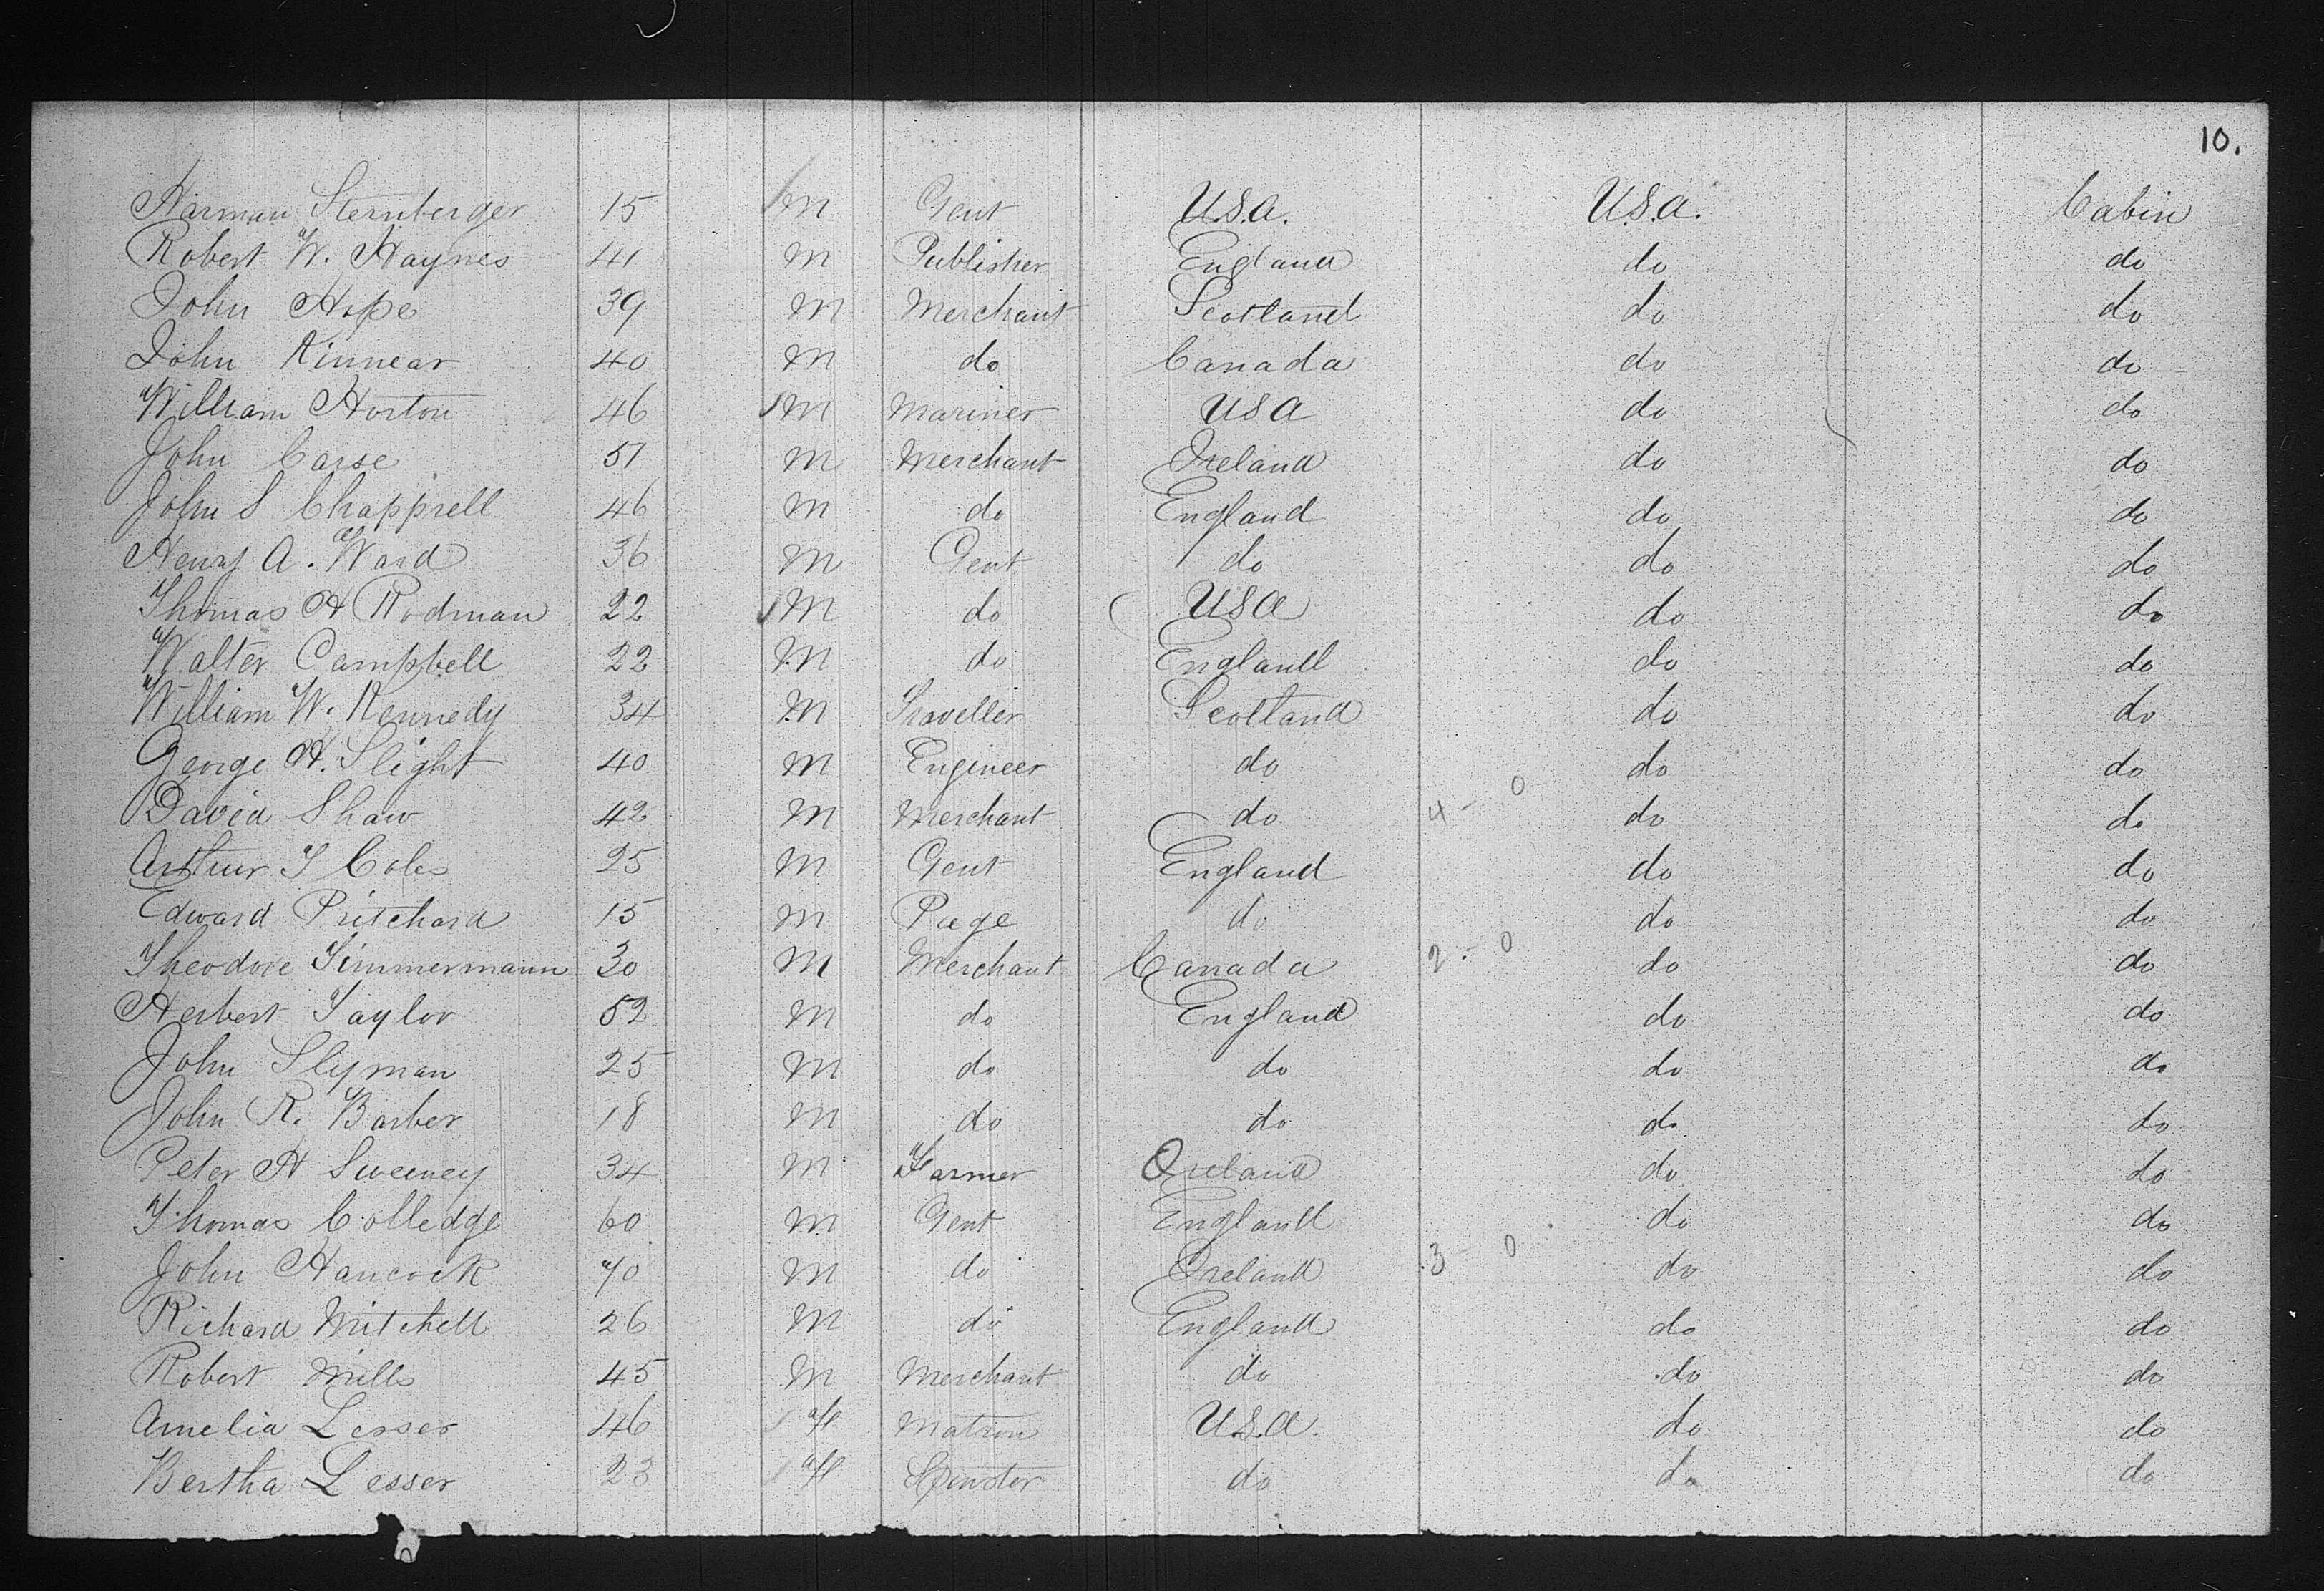 10.
Harman Sternberger 15 M Gent U.S.A. U.S.A. Cabin
Robert W. Haynes 41 M Publisher England do do
John Hope 39 M Merchant Scotland do do
John Kinnear 40 M do Canada do do
William Horton 46 M Mariner USA do do
John Carse 51 M Merchant Ireland do do
John S Chappell 46 M do England do do
Henry A. Ward 36 M Gent do do do
Thomas H Rodman 22 M do USA do do
Walter Campbell 22 M do England do do
William W. Kennedy 34 M Traveller Scotland do do
George H. Slight 40 M Engineer do do do
David Shaw 42 M Merchant do 4 - 0 do do
Arthur T Coles 25 M Gent England do do
Edward Pritchard 15 M Page do do do
Theodore Timmermann 30 M Merchant Canada 2 - 0 do do
Herbert Taylor 52 M do England do do
John Slyman 25 M do do do do
John R. Barber 18 M do do do do
Peter H Sweeney 34 M Farmer Ireland do do
Thomas Colledge 60 M Gent England do do
John Hancock 70 M do Ireland 3 - 0 do do
Richard Mitchell 26 M do England do do
Robert Mills 45 M Merchant do do do
Amelia Lesser 46 F Matron U.S.A. do do
Bertha Lesser 23 F Spinster do do do